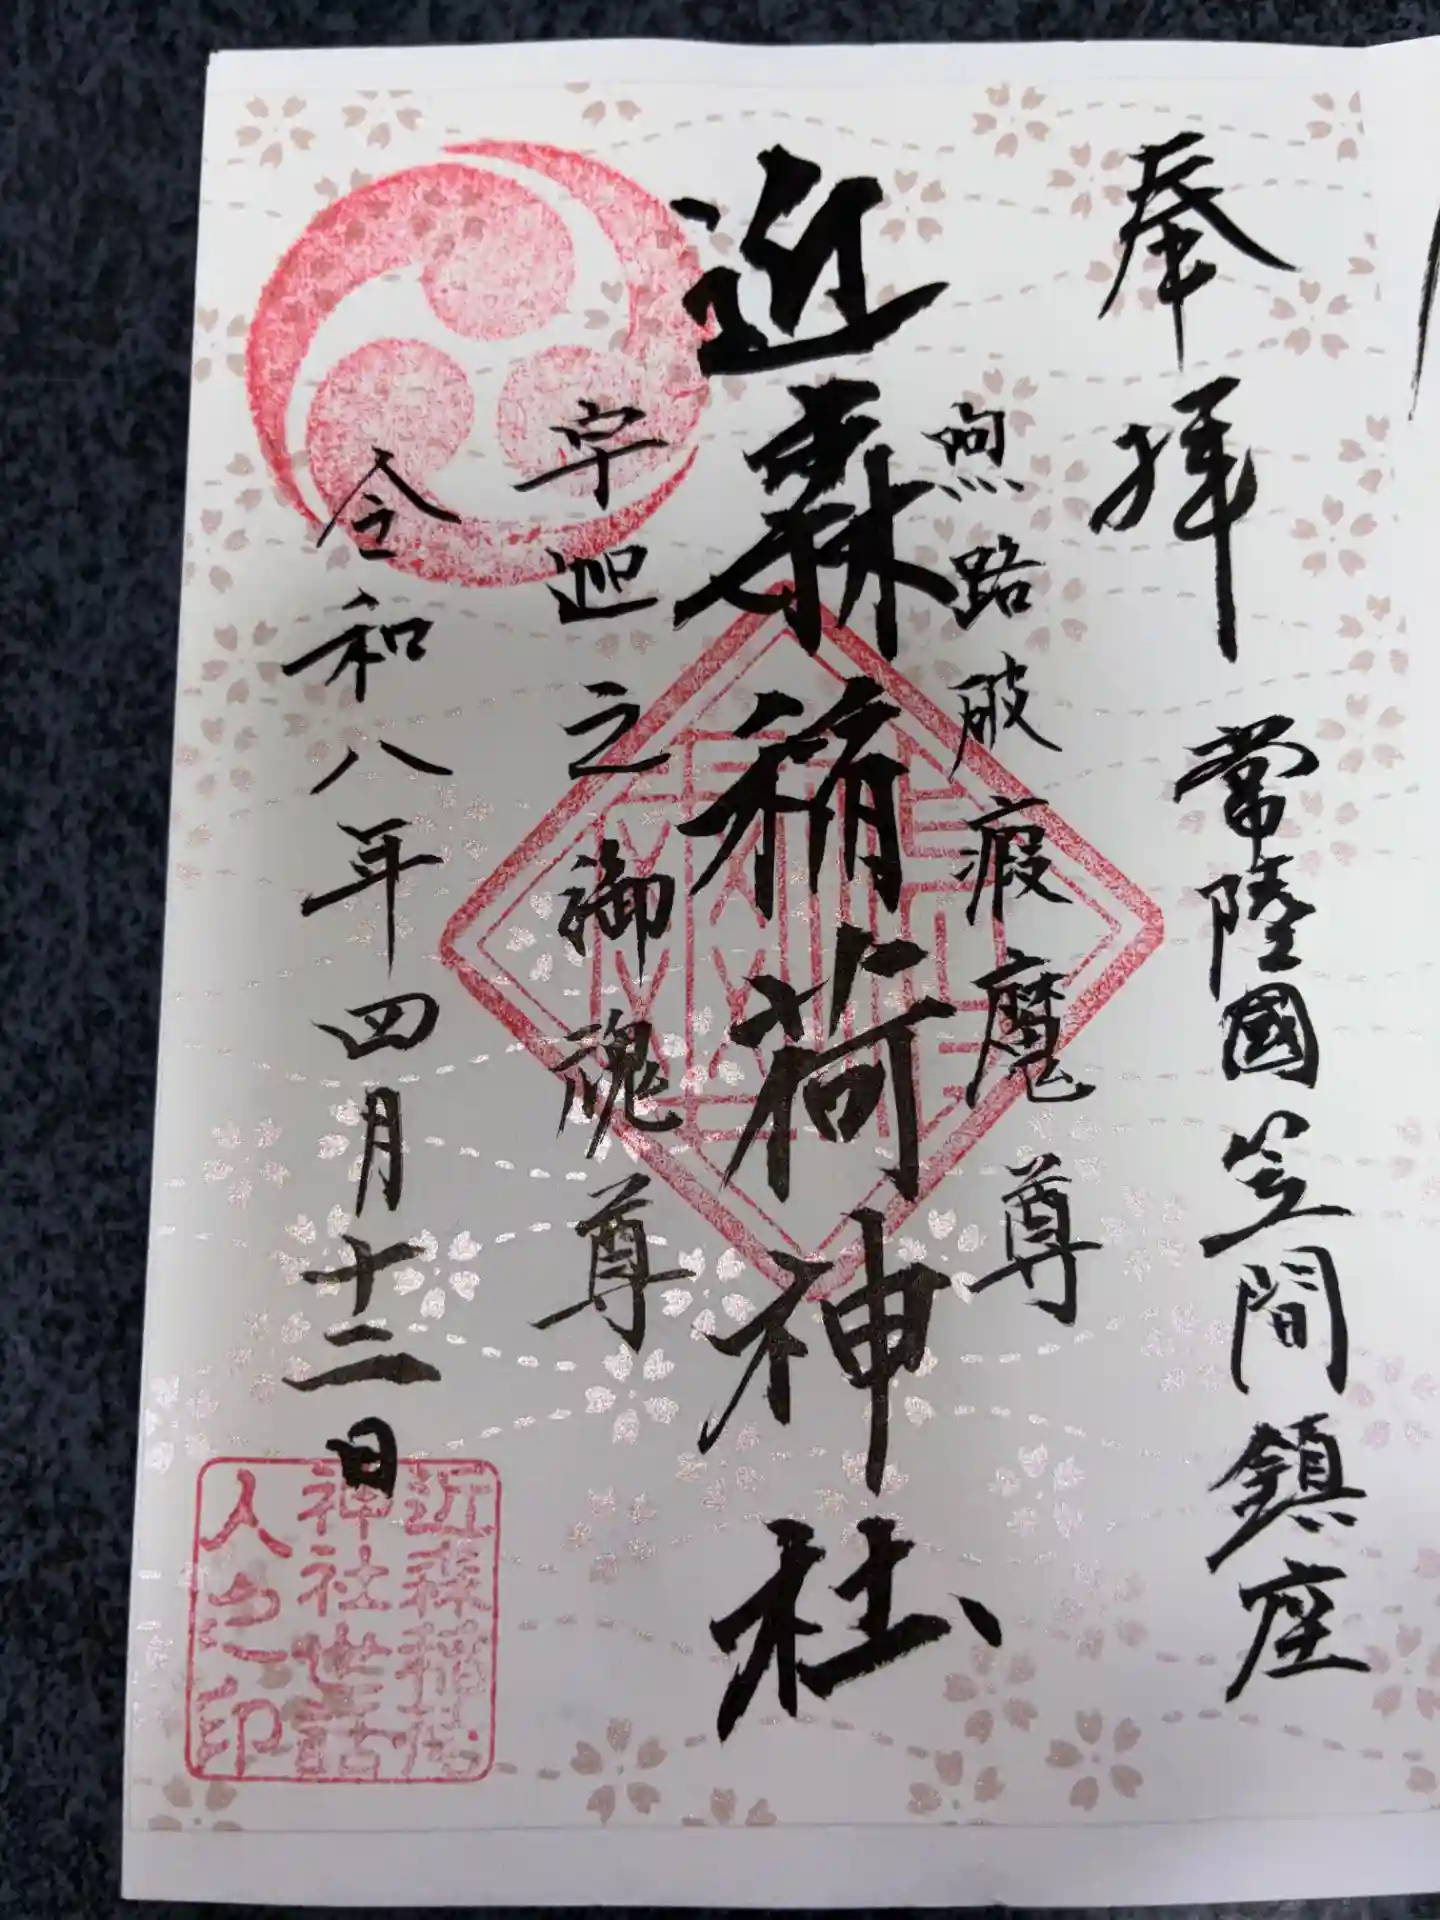 奉拝
常陸國笠間鎮座
煦路破瘕魔尊
近森稲荷神社
宇迦之御魂尊
令和八年四月十二日
近森稲荷
神社世話
人之印